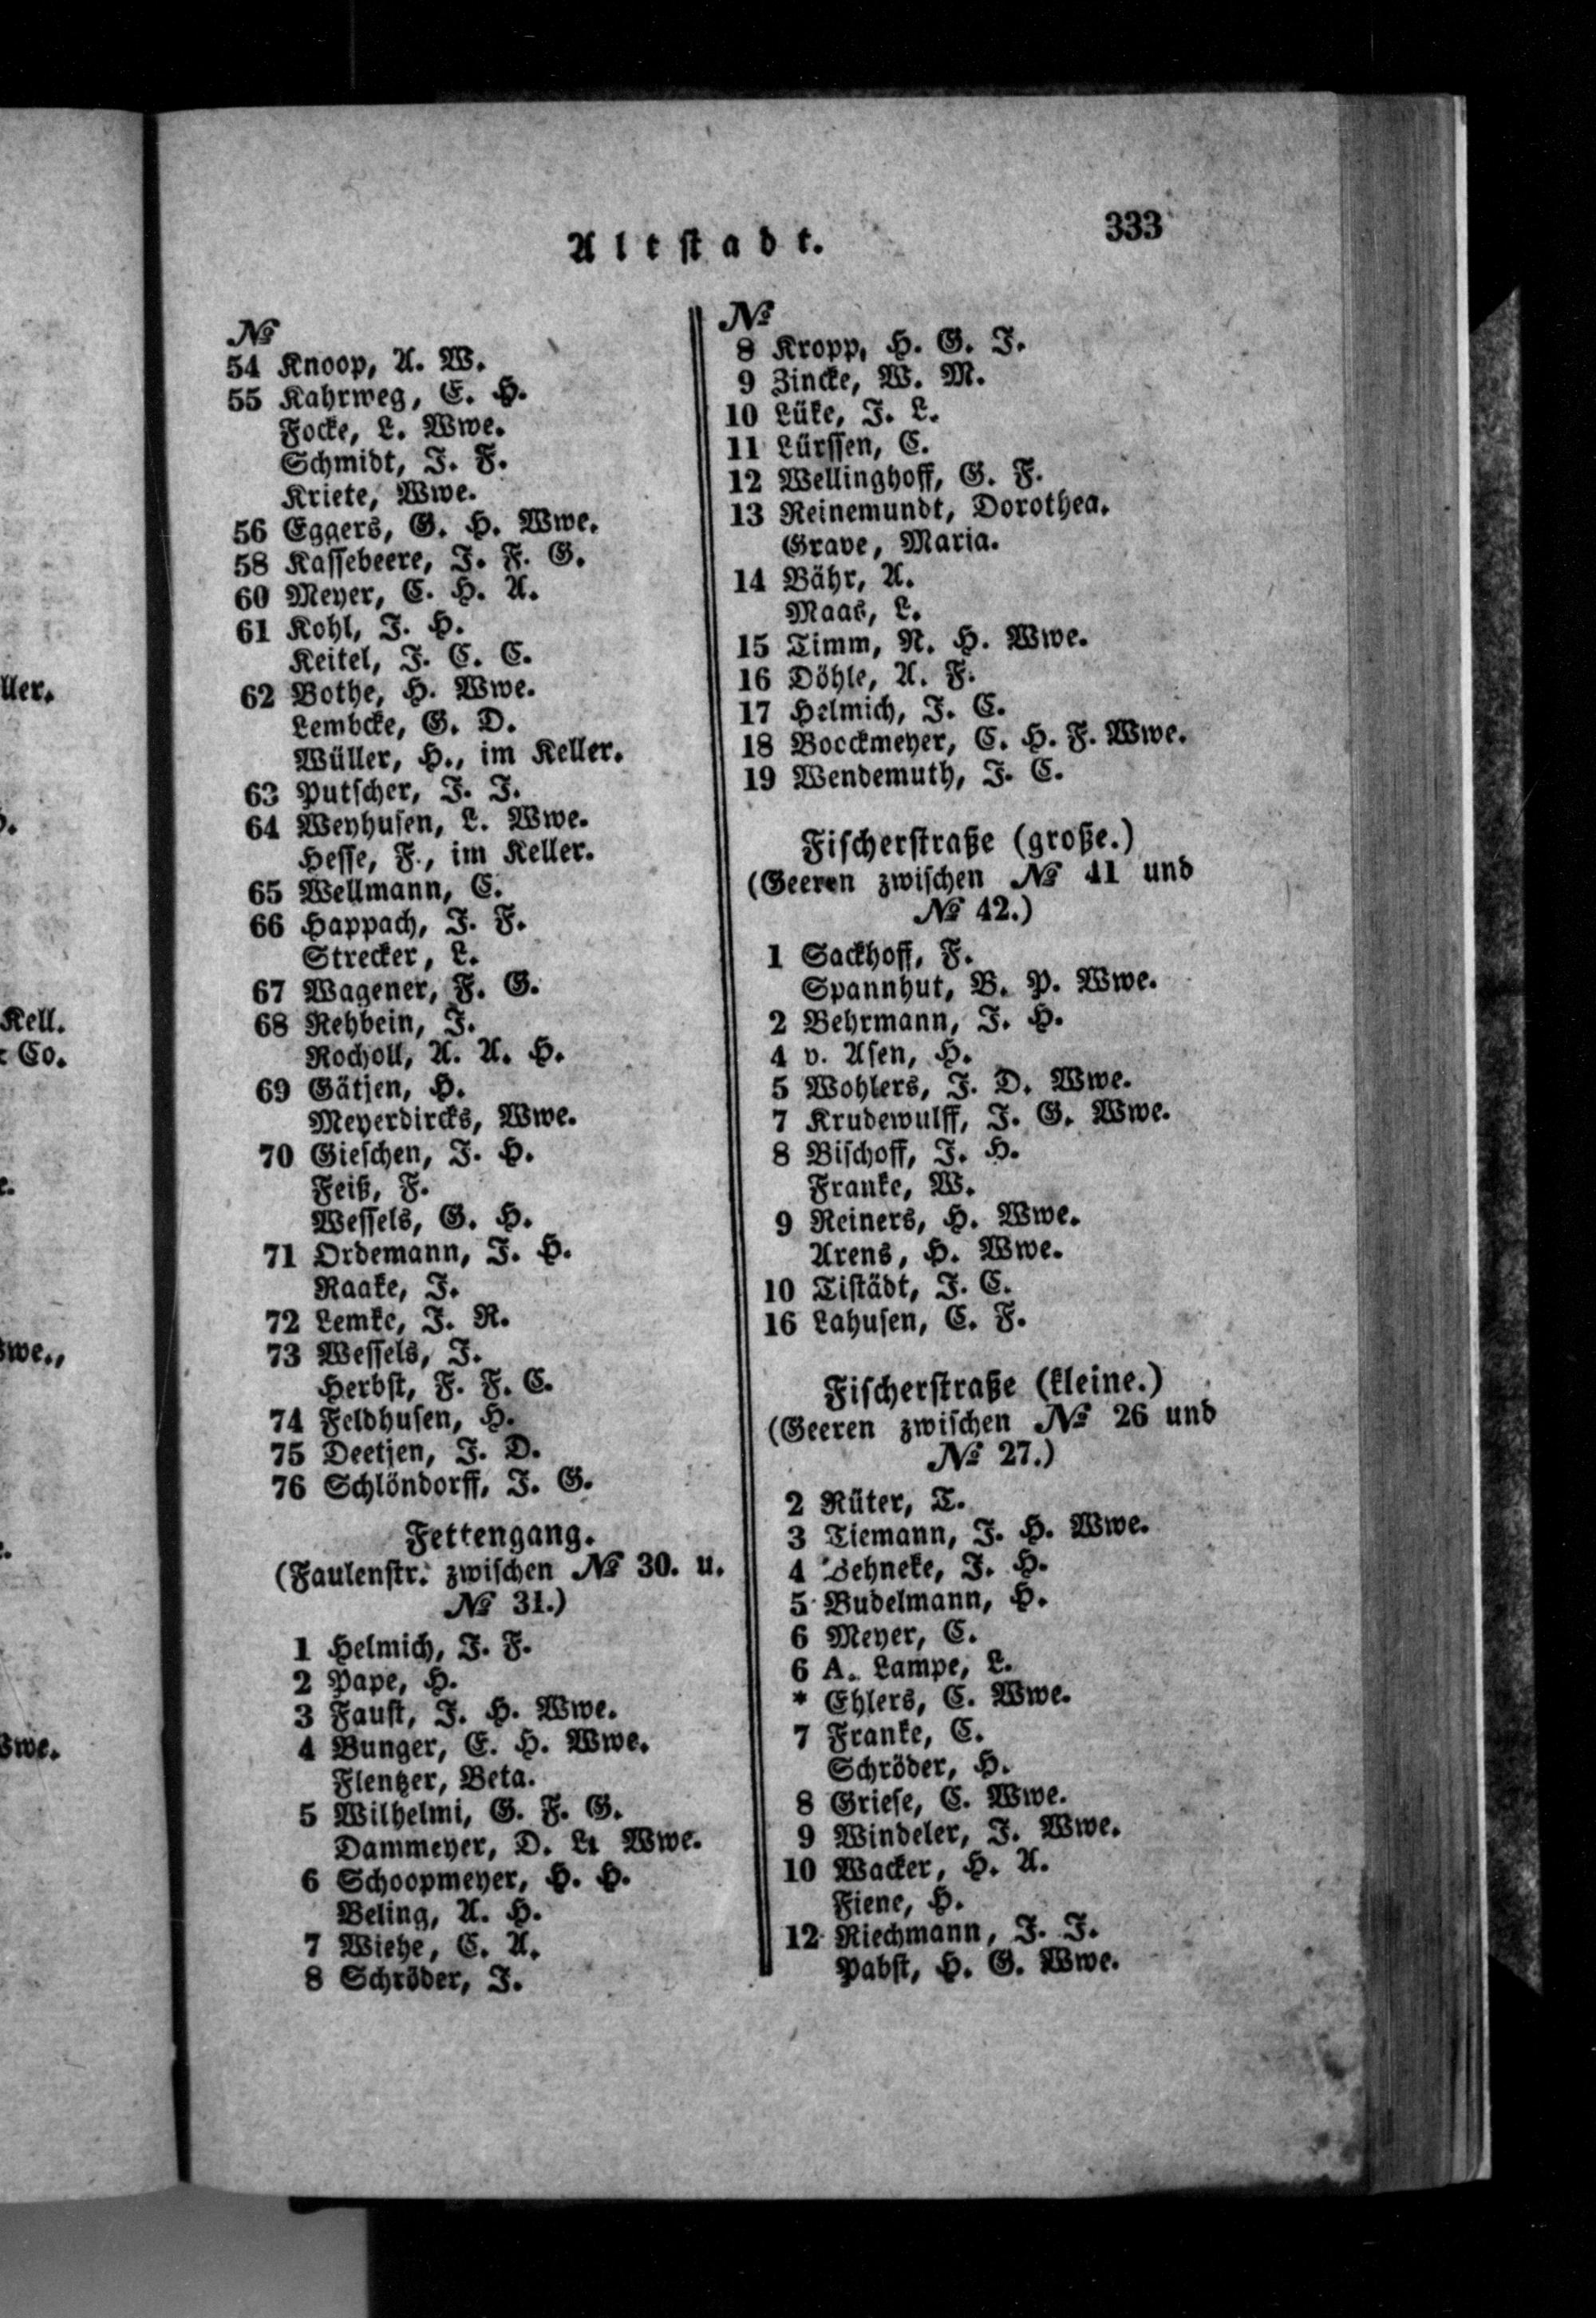 Altstadt.
333
№
54 Knoop, A. W.
55 Kahrweg, E. H.
Focke, L. Wwe.
Schmidt, J. F.
Kriete, Wwe.
56 Eggers, G. H. Wwe.
58 Kassebeere, J. F. G.
60 Meyer, C. H. A.
61 Kohl, J. H.
Keitel, J. C. C.
62 Bothe, H. Wwe.
Lembcke, G. D.
Wüller, H., im Keller.
63 Putscher, J. J.
64 Weyhusen, L. Wwe.
Hesse, F., im Keller.
65 Wellmann, C.
66 Happach, J. F.
Strecker, L.
67 Wagener, F. G.
68 Rehbein, J.
Rocholl, A. A. H.
69 Gätjen, H.
Meyerdircks, Wwe.
70 Gieschen, J. H.
Feiß, F.
Wessels, G. H.
71 Ordemann, J. H.
Raake, J.
72 Lemke, J. R.
73 Wessels, J.
Herbst, F. F. C.
74 Feldhusen, H.
75 Deetjen, J. D.
76 Schlöndorff, J. G.
Fettengang.
(Faulenstr. zwischen № 30. u.
№ 31.)
1 Helmich, J. F.
2 Pape, H.
3 Faust, J. H. Wwe.
4 Bunger, E. H. Wwe.
Flentzer, Beta.
5 Wilhelmi, G. F. G.
Dammeyer, D. L. Wwe.
6 Schoopmeyer, H. H.
Beling, A. H.
7 Wiehe, C. A.
8 Schröder, J.
№
8 Kropp, H. G. J.
9 Zincke, W. M.
10 Lüke, J. L.
11 Lürssen, C.
12 Wellinghoff, G. F.
13 Reinemundt, Dorothea.
Grave, Maria.
14 Bähr, A.
Maas, L.
15 Timm, N. H. Wwe.
16 Döhle, A. F.
17 Helmich, J. C.
18 Boockmeyer, C. H. F. Wwe.
19 Wendemuth, J. C.
Fischerstraße (große.)
(Geeren zwischen № 41 und
№ 42.)
1 Sackhoff, F.
Spannhut, B. P. Wwe.
2 Behrmann, J. H.
4 v. Asen, H.
5 Wohlers, J. D. Wwe.
7 Krudewulff, J. G. Wwe.
8 Bischoff, J. H.
Franke, W.
9 Reiners, H. Wwe.
Arens, H. Wwe.
10 Tistädt, J. C.
16 Lahusen, C. F.
Fischerstraße (kleine.)
(Geeren zwischen № 26 und
№ 27.)
2 Rüter, T.
3 Tiemann, J. H. Wwe.
4 Behneke, J. H.
5 Budelmann, H.
6 Meyer, C.
6 A. Lampe, L.
* Ehlers, C. Wwe.
7 Franke, C.
Schröder, H.
8 Griese, C. Wwe.
9 Windeler, J. Wwe.
10 Wacker, H. A.
Fiene, H.
12 Riechmann, J. J.
Pabst, H. G. Wwe.